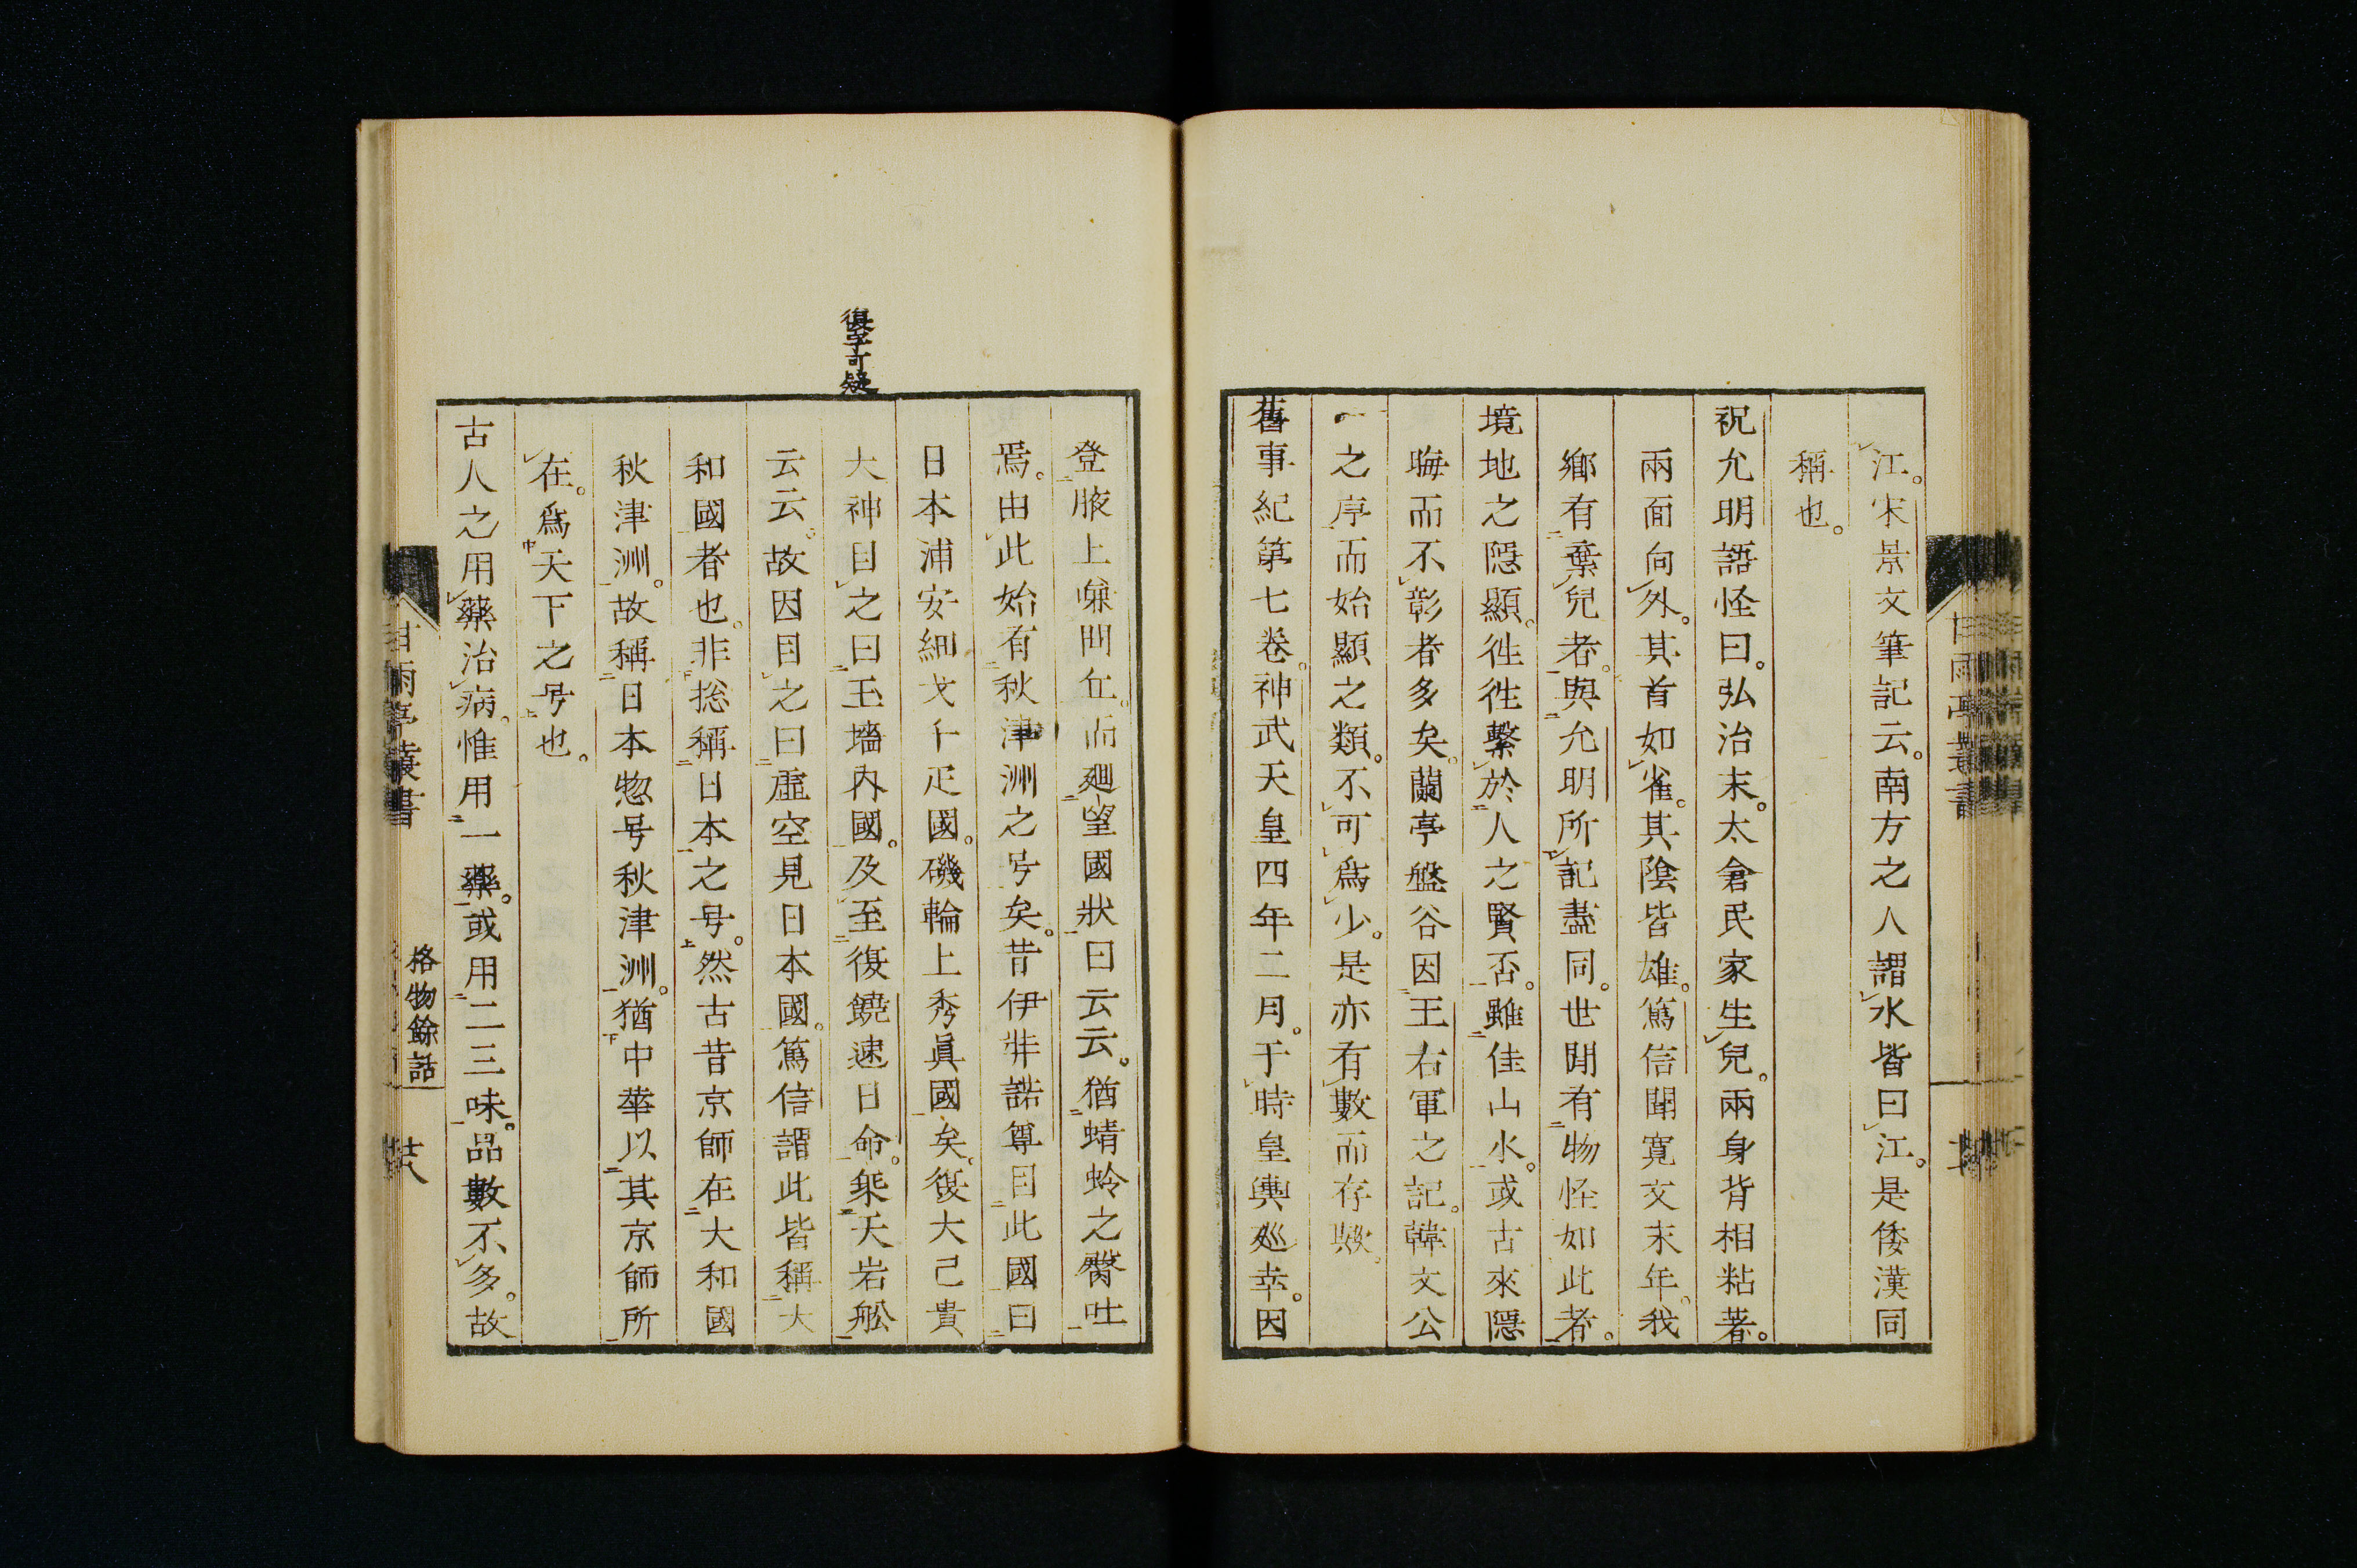 江。宋景文筆記云。南方之人謂水皆曰江。是倭漢同
稱也。
祝允明語怪曰。弘治末。太倉民家生兒。兩身背相粘著。
兩面向外。其首如雀。其陰皆雄。篤信聞寬文末年。我
鄉有棄兒者。與允明所記盡同。世間有物怪如此者。
境地之隱顯。徃徃繫於人之賢否。雖佳山水。或古來隱
晦而不彰者多矣。蘭亭盤谷因王右軍之記。韓文公
一之序而始顯之類。不可爲少。是亦有數而存歟。
舊事紀第七卷。神武天皇四年二月。于時皇輿廵幸。因
登腋上嗛間丘。而廻望國狀曰云云。猶蜻蛉之臀呫
焉。由此始有秋津洲之号矣。昔伊弉諾尊目此國曰
日本浦安細戈千疋國。磯輪上秀眞國矣。復大己貴
大神目之曰玉墻内國。及至復饒速日命。乗天岩舩
云云。故因目之曰虛空見日本國。篤信謂此皆稱大
和國者也。非捴稱日本之号。然古昔京師在大和國
秋津洲。故稱日本惣号秋津洲。猶中華以其京師所
在。爲天下之号也。
古人之用藥治病。惟用一藥。或用二三味。品數不多。故
復字可疑
甘雨亭叢書
格物餘話
甘雨亭叢書